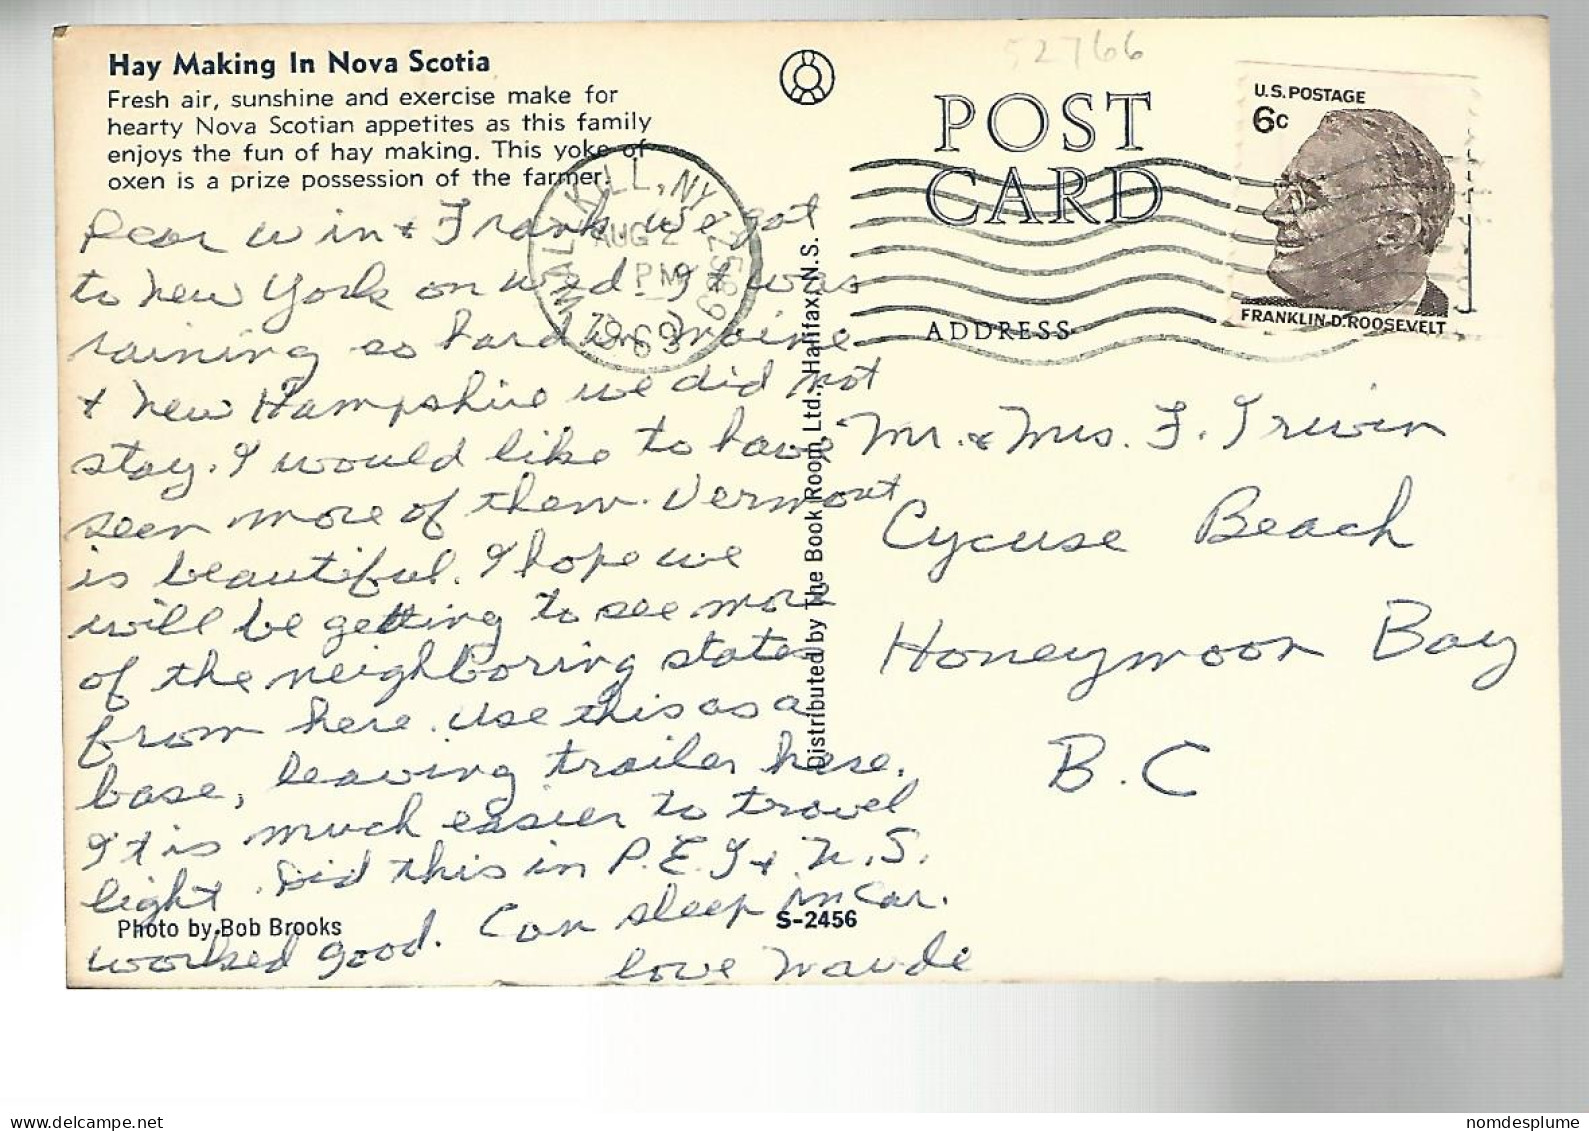 52766
Hay Making In Nova Scotia
Fresh air, sunshine and exercise make for
hearty Nova Scotian appetites as this family
enjoys the fun of hay making. This yoke of
oxen is a prize possession of the farmer.
POST
CARD
ADDRESS
U.S. POSTAGE
6c
FRANKLIN D. ROOSEVELT
WALLKILL, NY
AUG 2
PM
1969
12589
Dear Win & Frank. We got
to New York on wed. It was
raining so hard in Maine
& New Hampshire we did not
stay. I would like to have
seen more of them. Vermont
is beautiful. I hope we
will be getting to see more
of the neighboring states
from here. Use this as a
base, leaving trailer here.
It is much easier to travel
light. Did this in P.E.I & N.S.
worked good. Can sleep in car.
love Maude
Mr. & Mrs. F. Irwin
Cycuse Beach
Honeymoon Bay
B.C
Distributed by The Book Room Ltd., Halifax, N.S.
Photo by Bob Brooks
S-2456
delcampe.net
nomdesplume